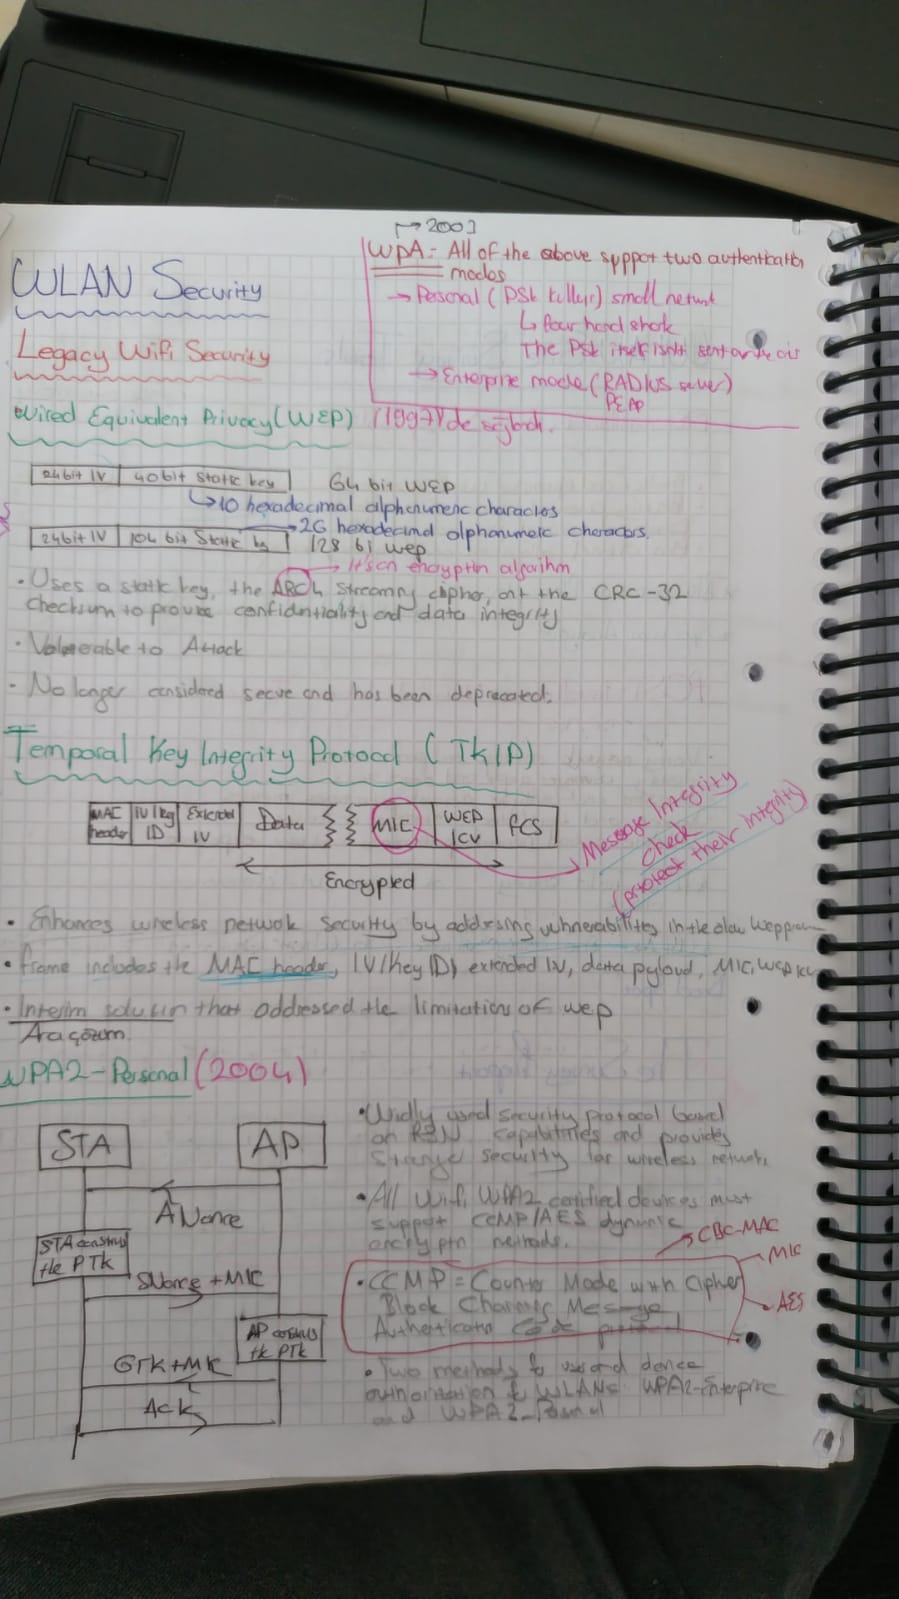 WLAN Security
Legacy Wifi Security
→ 2003
WPA - All of the above support two authentication
modes
→ Personal (PSK ) small
↳ four hand shak
The PSK itself isnt sent on the air
→ Enterprise mode (RADIUS server)
PEAP
Wired Equivalent Privacy (WEP) (1997)
24 bit IV 40 bit Static key 64 bit WEP
→ 10 hexadecimal alphanumeric characters
→ 26 hexadecimal alphanumeric characters.
24 bit IV 104 bit Static 128 bi wep
→ It's an encryption algorithm
• Uses a static key, the ARC4 streaming cipher, and the CRC-32
checksum to provide confidentiality and data integrity
• Vulnerable to Attack
- No longer considered secure and has been deprecated.
Temporal Key Integrity Protocol (TKIP)
MAC header IV/Key ID Extended IV Data MIC WEP ICV FCS
Encrypted
Message Integrity
check
(protect their integrity)
• Enhances wireless network security by addressing vulnerabilities in the
• Frame includes the MAC header, IV/Key ID, extended IV, data payload, MIC, WEP ICV
• Interim solution that addressed the limitations of wep
Ara çözüm.
WPA2-Personal (2004)
STA AP
ANonce
STA construs
the PTK
SNonce + MIC
AP construs
the PTK
GTK + MIC
Ack
• Widly used security protocol based
on RSN capabilities and provides
security for wireless network.
• All Wifi WPA2 certified devices must
support CCMP/AES dynamic
encryptn methods.
→ CBC-MAC
→ MIC
→ AES
• CCMP = Counter Mode with Cipher
Block Chaining Message
Authentication Code
• Two methods to user and device
WLANs WPA2-Enterprise
and WPA2-Personal